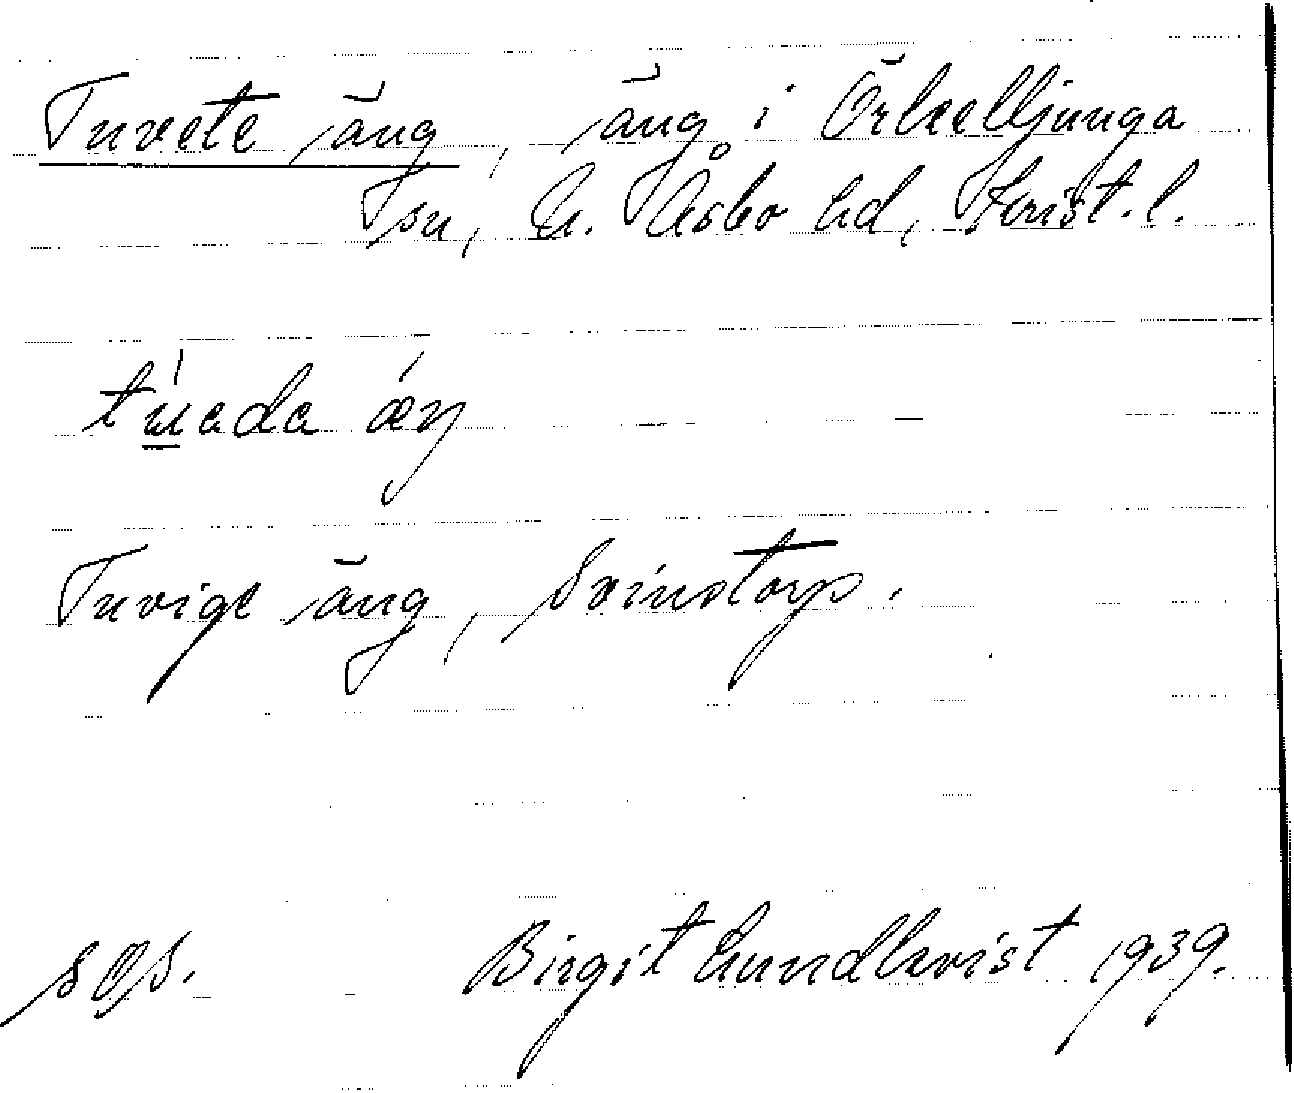 Tuvete äng, äng i Örkelljunga
Sn, N. Åsbo hd, Krist. l.
tùada áŋ
Tuvige äng, Svinstorp.
Birgit Lundkvist 1939.